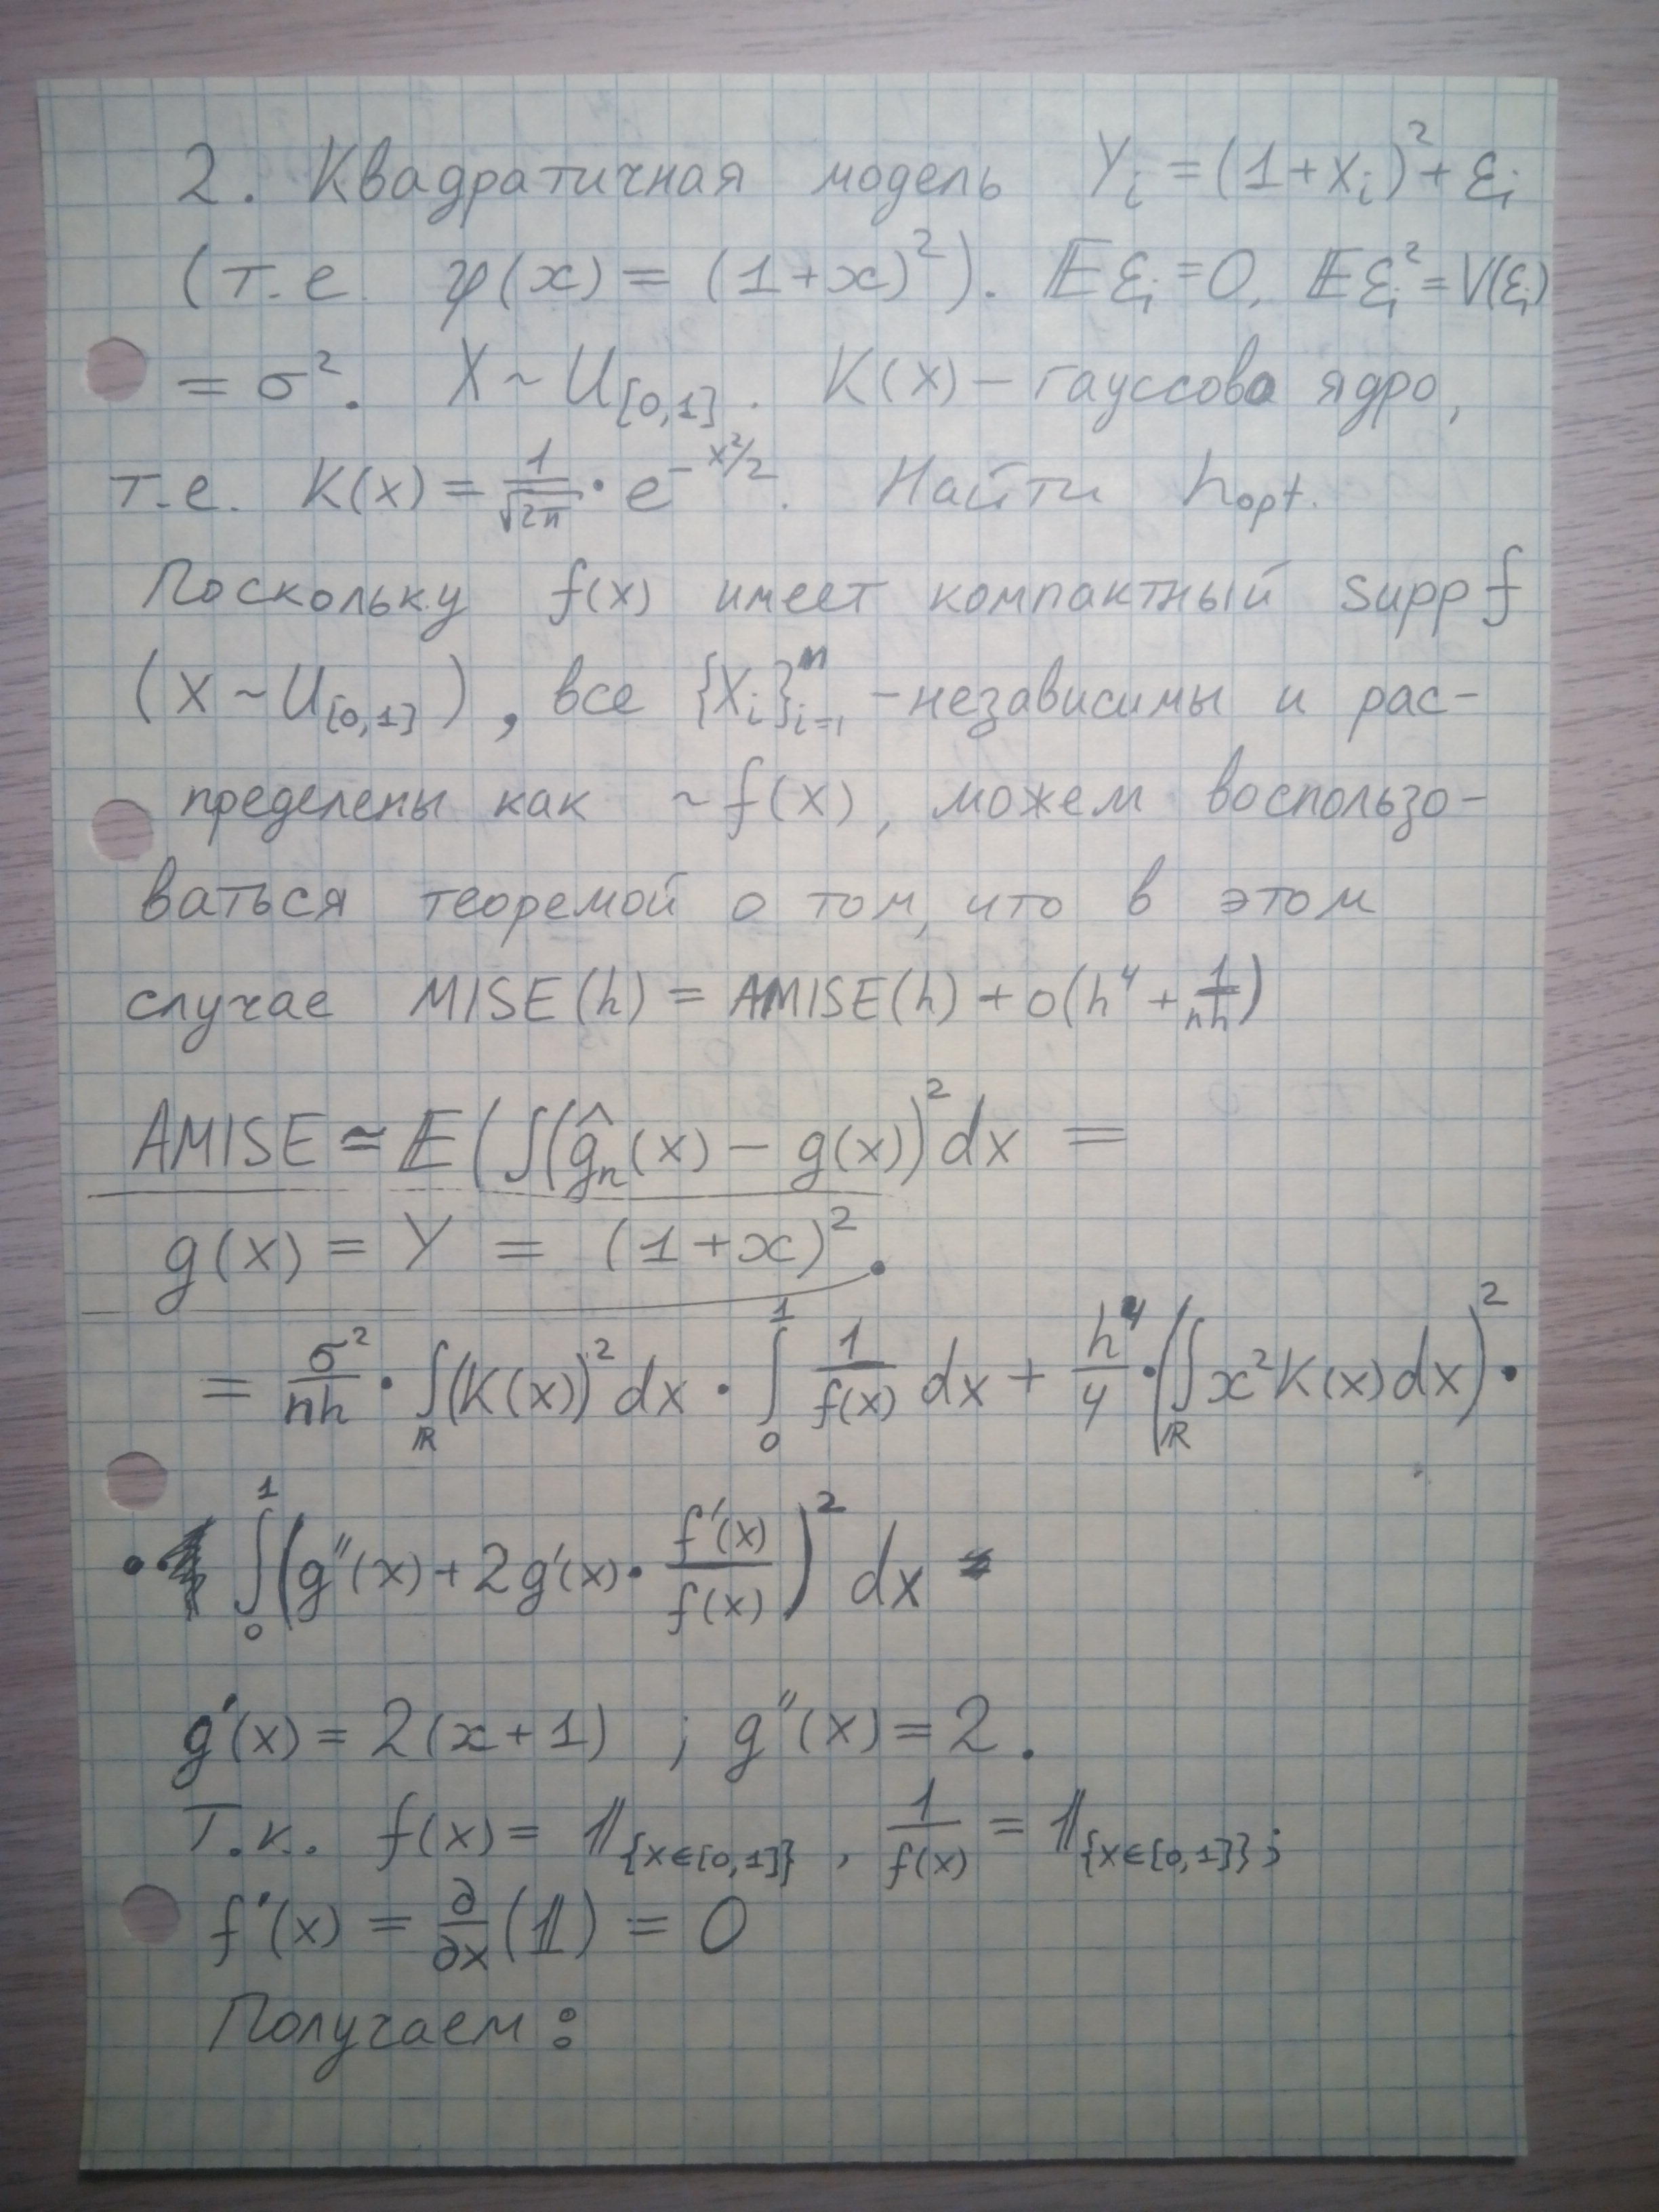 2. Квадратичная модель Y_i = (1+X_i)² + ε_i
(т.е. φ(x) = (1+x)²). 𝔼ε_i = 0, 𝔼ε_i² = V(ε_i)
= σ². X ~ U_[0,1]. K(x) – гауссово ядро,
т.е. K(x) = 1/√(2π) · e^(-x²/2). Найти h_opt.
Поскольку f(x) имеет компактный supp f
(X ~ U_[0,1]), все {X_i}_{i=1}^n – независимы и рас-
пределены как ~ f(x), можем воспользо-
ваться теоремой о том, что в этом
случае MISE(h) = AMISE(h) + o(h⁴ + 1/(nh))
AMISE ≃ 𝔼(∫(ĝ_n(x) – g(x))² dx =
g(x) = Y = (1+x)².
= σ²/(nh) · ∫_ℝ (K(x))² dx · ∫_0^1 1/f(x) dx + h⁴/4 · (∫_ℝ x²K(x)dx)² ·
· ∫_0^1 (g''(x) + 2g'(x) · f'(x)/f(x))² dx
g'(x) = 2(x+1) ; g''(x) = 2.
Т.к. f(x) = 𝟙_{x∈[0,1]}, 1/f(x) = 𝟙_{x∈[0,1]};
f'(x) = ∂/∂x (𝟙) = 0
Получаем: